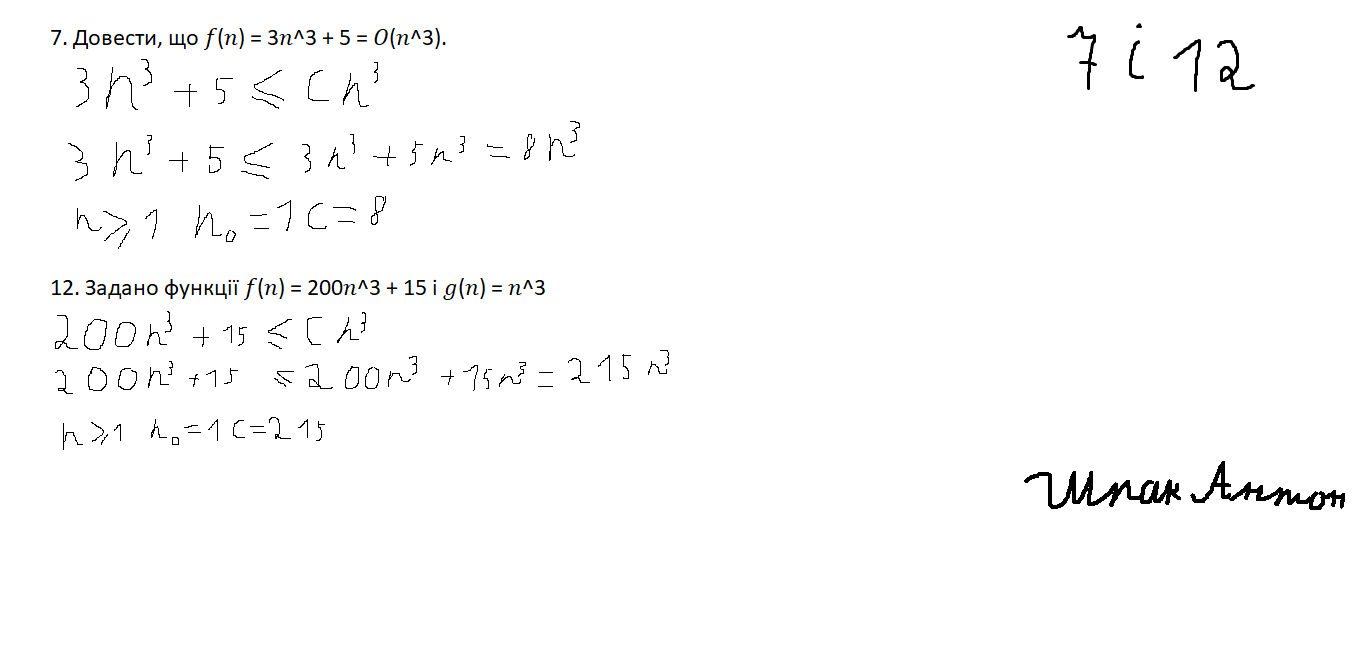 7. Довести, що f(n) = 3n^3 + 5 = O(n^3).
7 і 12
3n³ + 5 ≤ Cn³
3n³ + 5 ≤ 3n³ + 5n³ = 8n³
n ≥ 1 n₀ = 1 C = 8
12. Задано функції f(n) = 200n^3 + 15 і g(n) = n^3
200n³ + 15 ≤ Cn³
200n³ + 15 ≤ 200n³ + 15n³ = 215n³
n ≥ 1 n₀ = 1 C = 215
Шпак Антон